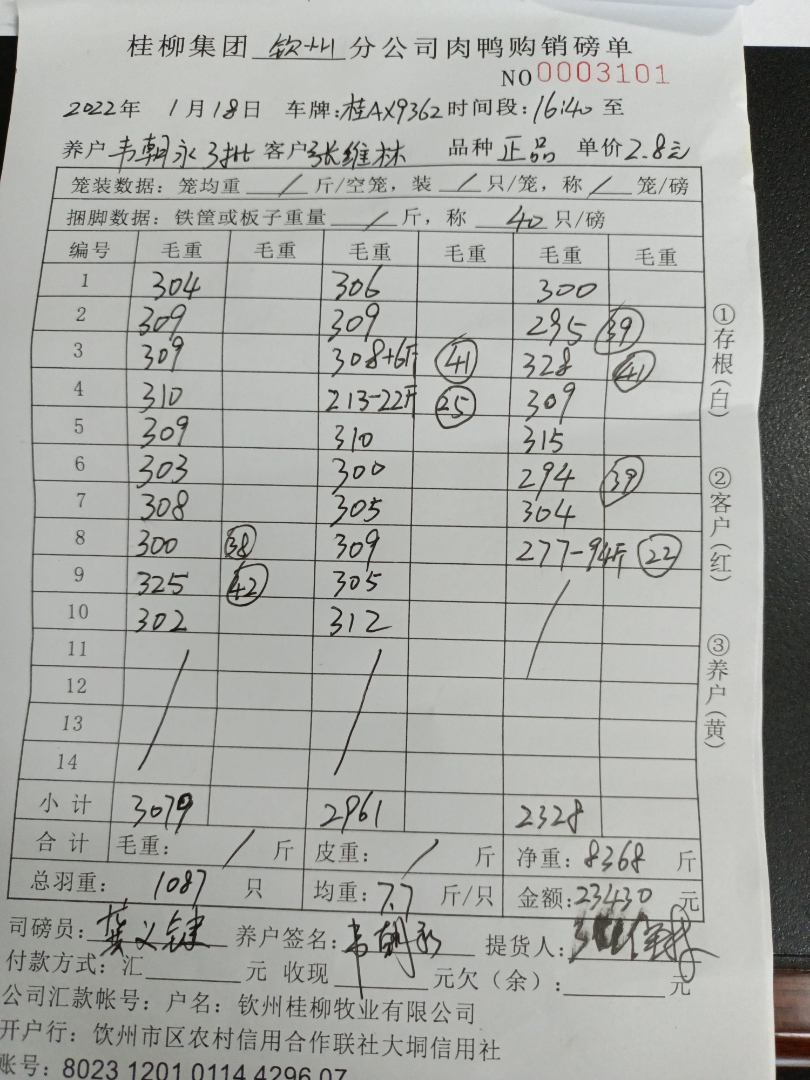 桂柳集团 钦州 分公司肉鸭购销磅单
NO 0003101
2022年 1月18日 车牌:桂AX9362 时间段:16:40 至
养户 韦朝永3批 客户 张维林 品种 正品 单价 2.8元
笼装数据：笼均重 / 斤/空笼，装 / 只/笼，称 / 笼/磅
捆脚数据：铁筐或板子重量 / 斤，称 40 只/磅
编号 毛重 毛重 毛重 毛重 毛重 毛重
1 304 306 300
2 309 309 295 39
3 309 308+6斤 41 328 41
4 310 213-22斤 25 309
5 309 310 315
6 303 300 294 39
7 308 305 304
8 300 38 309 277-94斤 22
9 325 42 305 /
10 302 312
11 / /
12
13
14
小计 3079 2961 2328
合计 毛重： / 斤 皮重： / 斤 净重：8368 斤
总羽重： 1087 只 均重：7.7 斤/只 金额：23430 元
司磅员： 养户签名：韦朝永 提货人：
付款方式：汇 元 收现 元欠（余）： 元
公司汇款帐号：户名：钦州桂柳牧业有限公司
开户行：饮州市区农村信用合作联社大垌信用社
账号：8023 1201 0114 4296 07
①存根(白)
②客户(红)
③养户(黄)